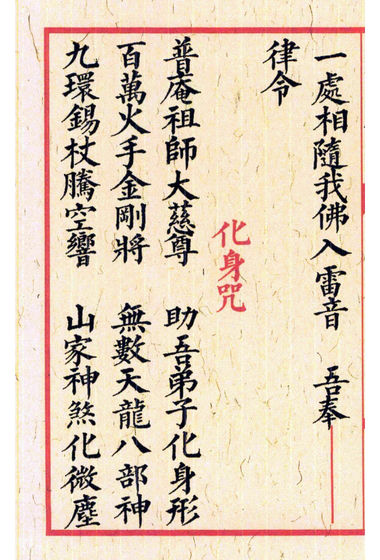 一處相隨我佛入雷音　吾奉
律令
化身咒
普庵祖師大慈尊　助吾弟子化身形
百萬火手金剛將　無數天龍八部神
九環錫杖騰空響　山家神煞化微塵